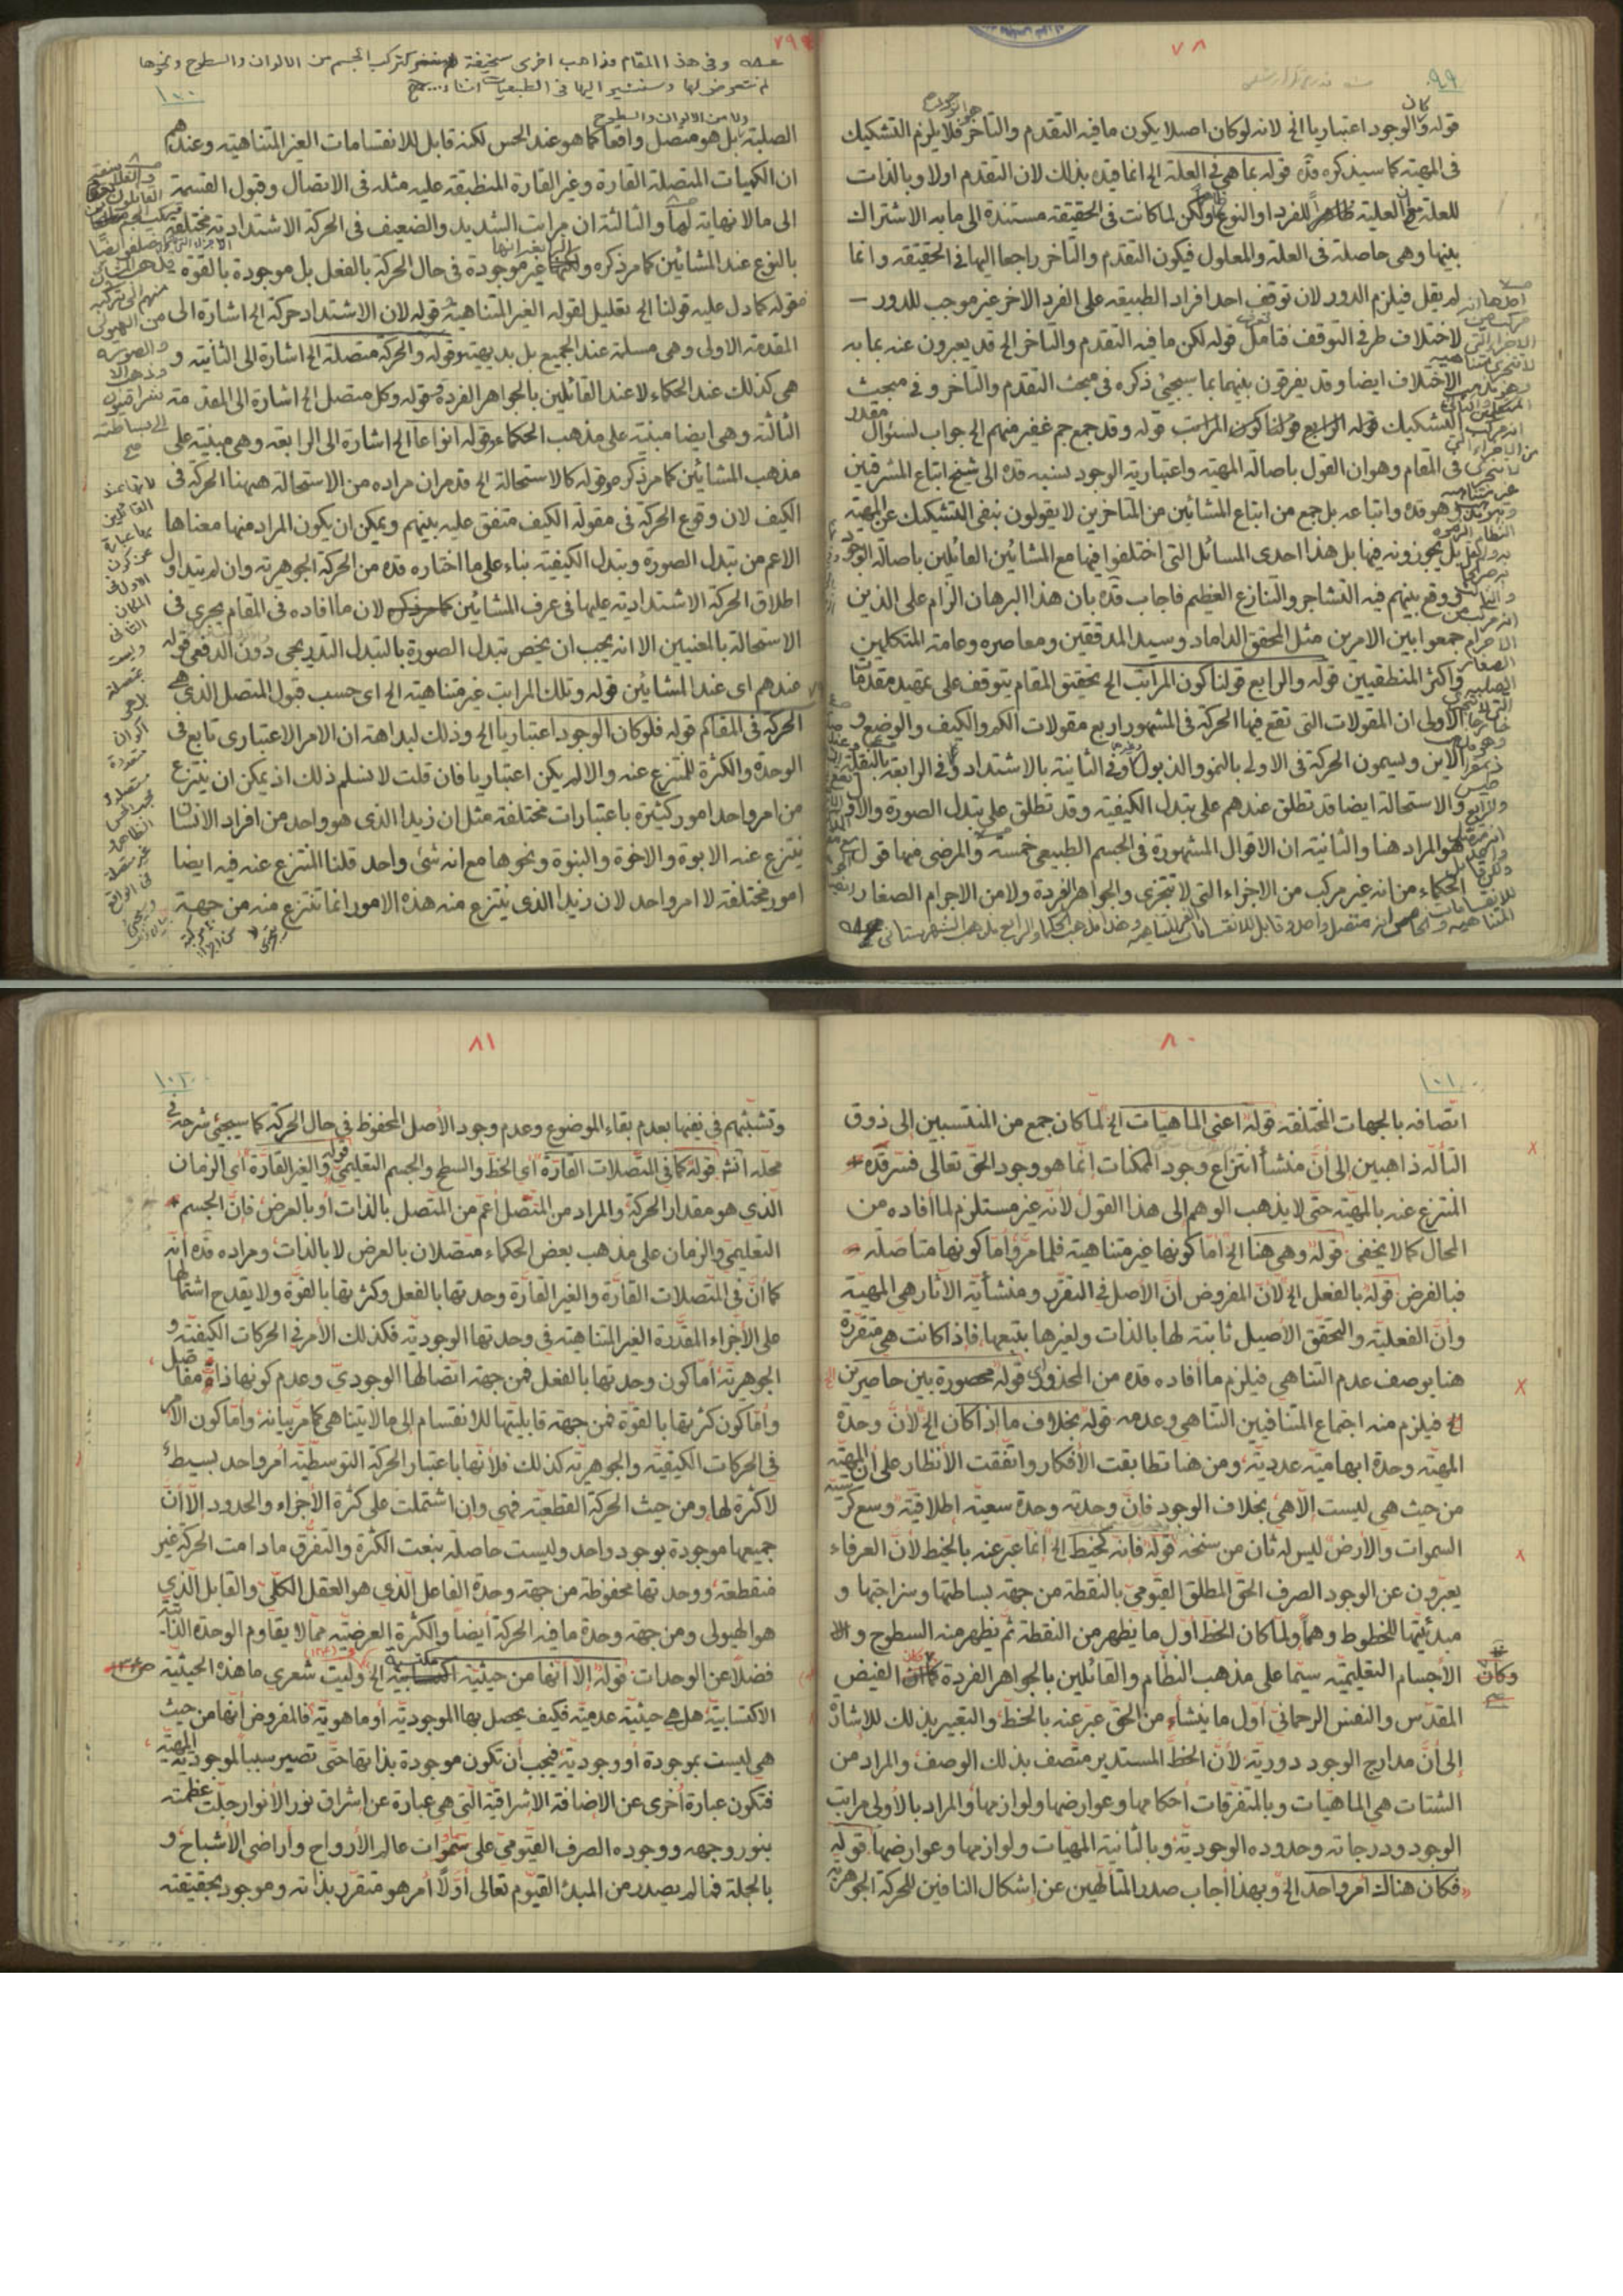 ٧٨
٩٩
قوله ولو كان الوجود اعتباريا الخ لانه لو كان اصيلا يكون ما فيه التقدم والتأخر فلا يلزم التشكيك
فى المهية كما سيذكره قده قوله بما هى فى العلة الخ انما قيده بذلك لان التقدم اولا وبالذات
بينها وهى حاصلة فى العلة والمعلول فيكون التقدم والتأخر راجعا اليها فى الحقيقة وانما
لم يقل فيلزم الدور لان توقف احد افراد الطبيعة على الفرد الاخر غير موجب للدور
لاختلاف طرفى التوقف فتامل قوله لكن ما فيه التقدم والتأخر الخ قد يعبرون عنه بما به
الاختلاف ايضا وقد يفرقون بينهما بما سيجيئ ذكره فى مبحث التقدم والتأخر وفى مبحث
التشكيك قوله وقد جمع جم غفير منهم الخ جواب لسئوال مقدر
فى المقام وهو ان القول باصالة المهية واعتبارية الوجود نسبه قده الى شيخ اتباع المشرقين
وهو قده واتباعه بل جمع من اتباع المشائين من المتأخرين لا يقولون بنفى التشكيك عن المهية
بل يجوزونه فيها بل هذا احدى المسائل التى اختلفوا فيها مع المشائين القائلين باصالة الوجود
وقع بينهم فيه التشاجر والتنازع العظيم فاجاب قده بان هذا البرهان الزام على الذين
جمعوا بين الامرين مثل المحقق الداماد وسيد المدققين ومعاصره وعامة المتكلمين
واكثر المنطقيين قوله والرابع قولنا كون المراتب الخ تحقيق المقام يتوقف على تمهيد مقدمات
الاولى ان المقولات التى تقع فيها الحركة فى المشهور اربع مقولات الكم والكيف والوضع و
الاين ويسمون الحركة فى الاولى بالنمو والذبول وفى الثانية بالاشتداد وفى الرابعة بالنقلة
والاستحالة ايضا قد تطلق عندهم على تبدل الكيفية وقد تطلق على تبدل الصورة والاول
هو المراد هنا والثانية ان الاقوال المشهورة فى الجسم الطبيعى خمسة والمرضى منها قول
الحكماء من انه غير مركب من الاجزاء التى لا تتجزى والجواهر الفردة ولا من الاجرام الصغار
٧٩
وفى هذا المقام مذاهب اخرى سخيفة كتركب الجسم من الالوان والسطوح ونحوها
لم نتعرض لها وسنشير اليها فى الطبيعيات انشاء
١٠٠
ولا من الالوان والسطوح
الصلبة بل هو متصل واقعا كما هو عند الحس لكنه قابل للانقسامات الغير المتناهية وعندهم
ان الكميات المتصلة القارة وغير القارة المنطبقة عليه مثله فى الاتصال وقبول القسمة
الى ما لا نهاية لها والثالثة ان مراتب الشديد والضعيف فى الحركة الاشتدادية مختلفة
بالنوع عند المشائين كما مر ذكره ولكنها غير موجودة فى حال الحركة بالفعل بل موجودة بالقوة
فقوله كما دل عليه قولنا الخ تعليل لقوله الغير المتناهية قوله لان الاشتداد حركة الخ اشارة الى
المقدمة الاولى وهى مسلمة عند الجميع بل بديهية وقوله والحركة متصلة الخ اشارة الى الثانية و
هى كذلك عند الحكماء لا عند القائلين بالجواهر الفردة قوله وكل متصل الخ اشارة الى المقدمة
الثالثة وهى ايضا مبنية على مذهب الحكماء وقوله انواعا الخ اشارة الى الرابعة وهى مبنية على
مذهب المشائين كما مر ذكره وقوله كالاستحالة الخ قد مر ان مراده من الاستحالة هيهنا الحركة فى
الكيف لان وقوع الحركة فى مقولة الكيف متفق عليه بينهم ويمكن ان يكون المراد منها معناها
الاعم من تبدل الصورة وتبدل الكيفية بناء على ما اختاره قده من الحركة الجوهرية وان لم يتداول
اطلاق الحركة الاشتدادية عليها فى عرف المشائين لان ما افاده فى المقام يجرى فى
الاستحالة بالمعنيين الا انه يجب ان يخص تبدل الصورة بالتبدل التدريجى دون الدفعى قوله
عندهم اى عند المشائين قوله وتلك المراتب غير متناهية الخ اى حسب قبول المتصل الذى هى
الحركة فى المقام قوله فلو كان الوجود اعتباريا الخ وذلك لبداهة ان الامر الاعتبارى تابع فى
الوحدة والكثرة للمنتزع عنه والا لم يكن اعتباريا فان قلت لا نسلم ذلك اذ يمكن ان ينتزع
من امر واحد امور كثيرة باعتبارات مختلفة مثل ان زيدا الذى هو واحد من افراد الانسان
ينتزع عنه الابوة والاخوة والبنوة ونحوها مع انه شئ واحد قلنا المنتزع عنه فيه ايضا
امور مختلفة لا امر واحد لان زيدا الذى ينتزع منه هذه الامور انما تنتزع منه من جهة
٨٠
١٠١
اتصافه بالجهات المختلفة قوله اعنى الماهيات الخ لما كان جمع من المنتسبين إلى ذوق
التألّه ذاهبين إلى أنّ منشأ انتزاع وجود الممكنات إنّما هو وجود الحق تعالى فسّر قدّه
المنتزع عنه بالمهيّة حتّى لا يذهب الوهم إلى هذا القول لأنّه غير مستلزم لما أفاده من
المحال كما لا يخفى قوله وهى هنا الخ أمّا كونها غير متناهية فلما مرّ وأمّا كونها متأصّلة
فبالفرض قوله بالفعل الخ لأنّ المفروض أنّ الأصل في التقرّر ومنشأيّة الآثار هى المهيّة
وأنّ الفعليّة والتحقق الأصيل ثابتة لها بالذات ولغيرها بتبعها فإذا كانت هى متقرّرة
هنا بوصف عدم التناهي فيلزم ما أفاده قده من المحذور قوله محصورة بين حاصرين
الخ فيلزم منه اجتماع المتنافيين التناهي وعدمه قوله بخلاف ما إذا كان الخ لأنّ وحدة
المهيّة وحدة ابهاميّة عدديّة ومن هنا تطابقت الأفكار واتّفقت الأنظار على أن المهيّة
من حيث هي ليست إلّا هي بخلاف الوجود فانّ وحدته وحدة سعيّة اطلاقيّة وسع كرسيّه
السموات والأرض ليس له ثان من سنخه قوله فانه كخيط الخ إنّما عبّر عنه بالخيط لأنّ العرفاء
يعبّرون عن الوجود الصرف الحق المطلق القيّوميّ بالنقطة من جهة بساطتها وسزاجتها و
مبدئيّتها للخطوط وهما ولما كان الخطّ أول ما يظهر من النقطة ثمّ يظهر منه السطوح و
الأجسام التعليميّة سيّما على مذهب النظّام والقائلين بالجواهر الفردة وكان الفيض
المقدّس والنفس الرحمانيّ أول ما ينشأ من الحق عبّر عنه بالخطّ والتعبير بذلك للاشارة
إلى أنّ مدارج الوجود دوريّة لأنّ الخطّ المستدير متّصف بذلك الوصف والمراد من
الشتات هي الماهيّات وبالمتفرقات أحكامها وعوارضها ولوازمها والمراد بالأولى مراتب
الوجود ودرجاته وحدوده الوجوديّة وبالثانية المهيّات ولوازمها وعوارضها قوله
فكان هناك أمر واحد الخ وبهذا أجاب صدر المتألّهين عن إشكال النافين للحركة الجوهريّة
٨١
١٠٢
وتشبّثهم في نفيها بعدم بقاء الموضوع وعدم وجود الأصل المحفوظ في حال الحركة كما سيجيئ شرحه في
محلّه آنشـ قوله كما في المتّصلات القارّة أي الخطّ والسطح والجسم التعليميّ قوله والغير القارّة أي الزمان
الّذي هو مقدار الحركة والمراد من المتّصل أعمّ من المتّصل بالذات أو بالعرض فإنّ الجسم
التعليميّ والزمان على مذهب بعض الحكماء متّصلان بالعرض لا بالذات ومراده قدّه أنّه
كما أنّ في المتّصلات القارّة والغير القارّة وحدتها بالفعل وكثرتها بالقوّة ولا يقدح اشتمالها
على الأجزاء المقدّرة الغير المتناهية في وحدتها الوجوديّة فكذلك الأمر في الحركات الكيفيّة و
الجوهريّة أمّا كون وحدتها بالفعل فمن جهة اتّصالها الوجوديّ وعدم كونها ذات مفاصل
وأمّا كون كثرتها بالقوّة فمن جهة قابليّتها للانقسام إلى ما لا يتناهى كما مرّ بيانه وأمّا كون الأمر
في الحركات الكيفيّة والجوهريّة كذلك فلأنّها باعتبار الحركة التوسّطيّة أمر واحد بسيط
لا كثرة لها ومن حيث الحركة القطعيّة فهي وإن اشتملت على كثرة الأجزاء والحدود الا أنّ
جميعها موجودة بوجود واحد وليست حاصلة بنعت الكثرة والتفرّق ما دامت الحركة غير
منقطعة ووحدتها محفوظة من جهة وحدة الفاعل الّذي هو العقل الكلّيّ والقابل الّذي
هو الهيولى ومن جهة وحدة ما فيه الحركة أيضاً والكثرة العرضيّة ممّا لا يقاوم الوحدة الذاتيّة
فضلاً عن الوحدات قوله إلّا أنّها من حيثيّة مكتسبة الخ وليت شعري ما هذه الحيثيّة
الاكتسابيّة هل هي حيثيّة عدميّة فكيف يحصل بها الموجوديّة أو ماهويّة فالمفروض أنّها من حيث
هي ليست بموجودة أو وجوديّة فيجب أن تكون موجودة بذاتها حتّى تصير سبباً لموجوديّة المهيّة
فتكون عبارة أخرى عن الاضافة الاشراقيّة الّتي هي عبارة عن إشراق نور الأنوار جلّت عظمته
بنور وجهه ووجوده الصرف القيّوميّ على سموات عالم الأرواح وأراضي الاشباح و
بالجملة فما لم يصدر من المبدء القيّوم تعالى أوّلاً أمر هو متقرّر بذاته وموجود بحقيقته